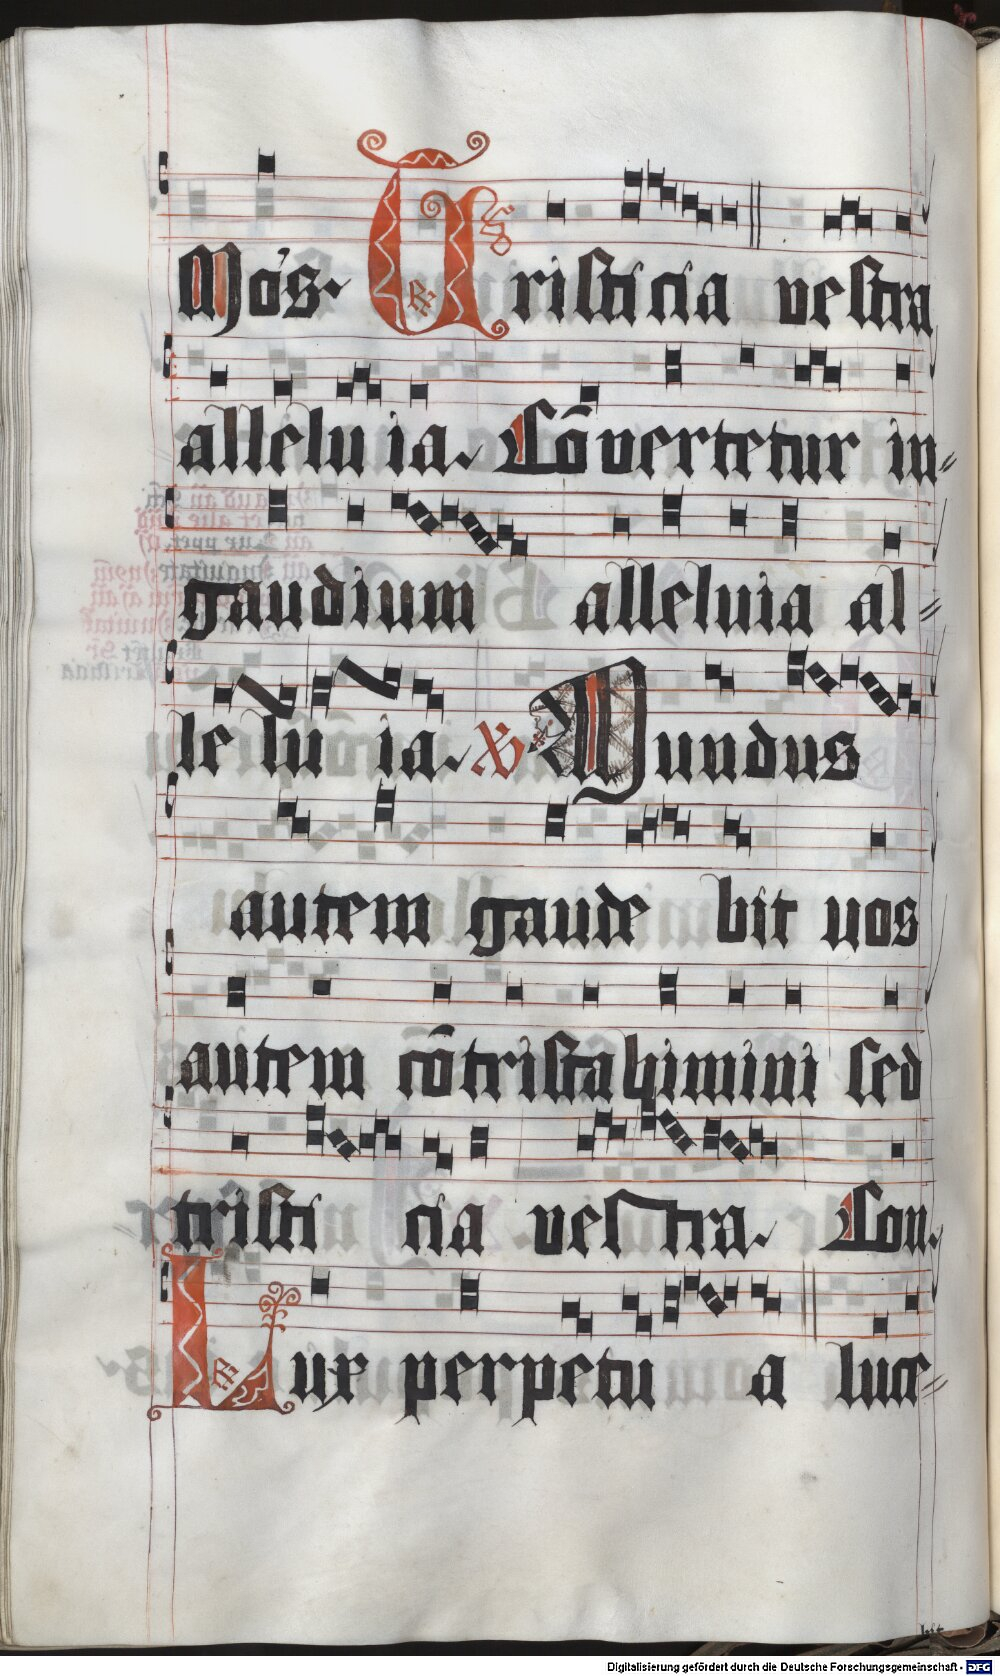 Mōs. Tristicia vestra
alleluia. Cōvertetur in=
gaudium alleluia al=
leluia. ℣ Mundus
autem gaudebit vos
autem cōtristabimini sed
tristicia vestra. Con.
Lux perpetua luce=
bit
Digitalisierung gefördert durch die Deutsche Forschungsgemeinschaft - DFG